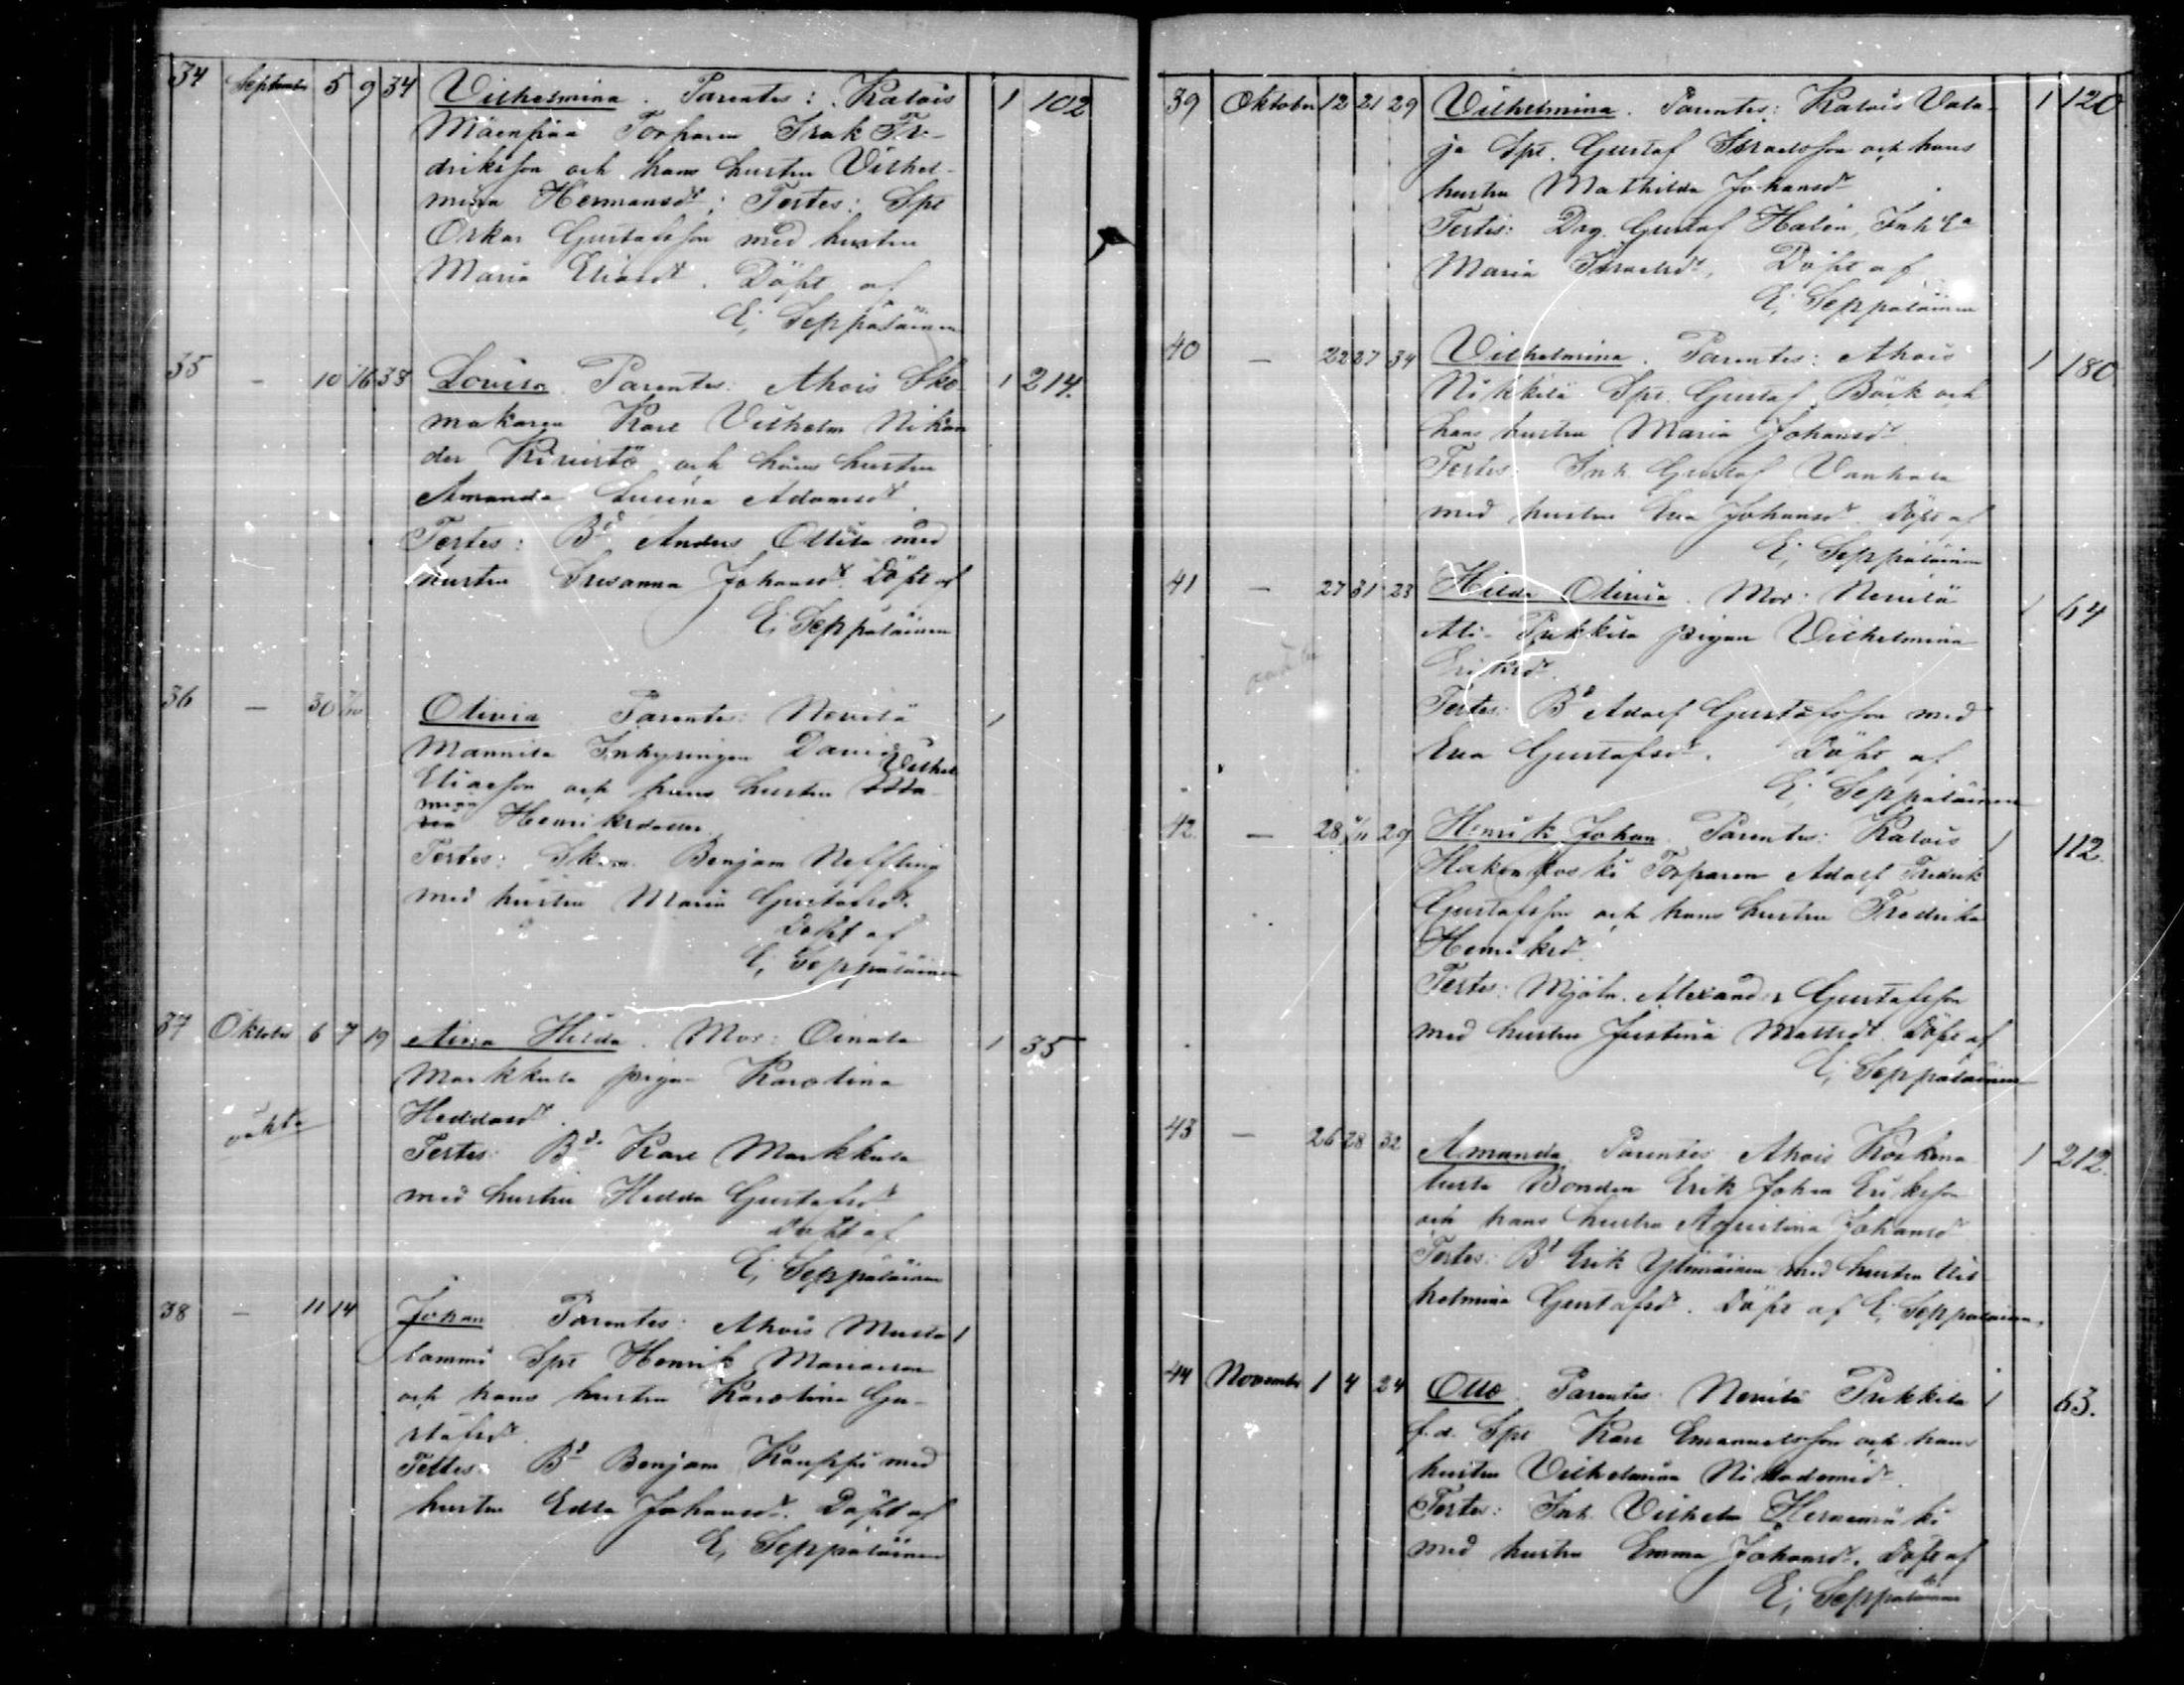 34 September 5 9 34 Vilhelmina. Parentes: Kalois 1 102
Mäenpää Torparen Isak Fre-
driksson och hans hustru Vilhel-
mina Hermansdr; Testes: Spr
Oskar Gustafsson med hustru
Maria Eliasdr. Döpt af
E. Seppäläinen
35 — 10 16 38 Lovisa. Parentes: Ahois Sko- 1 214.
makaren Karl Vilhelm Nikan
der och hans hustru
Amanda Adamsdr.
Testes: Bd Anders Ollila med
hustru Susanna Johansdr. Döpt af
E. Seppäläinen
36 — 30 Olivia Parentes: Nevilä 1
Mannila Inhysingen David
Eliasson och hans hustru Vilhel
mina Henriksdotter.
Testes: Benjam Neffling
med hustru Maria Gustafsdr.
Döpt af
E. Seppäläinen
37 Oktober 6 7 19 Aina Hilda. Mor: Oinala 1 35
Markkula pigan Karolina
Heddasdr.
oäkta
Testes: Bd. Karl Markkula
med hustru Hedda Gustafsdr
Döpt af
E. Seppäläinen
38 — 11 14 Johan Parentes: Ahois Musta 1
lammi Spr Henrik
och hans hustru Karolina Gu-
stafsdr.
Testes: Bd Benjam Kauppi med
hustru Edla Johansdr. Döpt af
E. Seppäläinen
39 Oktober 12 21 29 Vilhelmina. Parentes: Kalois Vata- 1 120
ja Spr. Gustaf Israelsson och hans
hustru Mathilda Johansdr
Testes: Drg. Gustaf Halén, Inh
Maria Israelsdr. Döpt af
E. Seppäläinen
40 — 22 27 34 Vilhelmina. Parentes: Ahois 1 180.
Nikkilä Spr. Gustaf Böök och
hans hustru Maria Johansdr
Testes: Inh. Gustaf Vanhala
med hustru Eva Johansdr. Döpt af
E. Seppäläinen
41 — 27 31 23 Hilda Olivia. Mor: Nevilä 1 64
Ali-Prekkila pigan Vilhelmina
Eriksdr.
Testes: Bd Adolf Gustafsson med
Eva Gustafsdr. Döpt af
E. Seppäläinen
42. — 28 29 Henrik Johan. Parentes: Kalois 1 112.
Hakonkoski Torparen Adolf Fredrik
Gustafsson och hans hustru Fredrika
Henriksdr.
Testes: Mjöln. Alexander Gustafsson
med hustru Justina Mattsdr. Döpt af
E. Seppäläinen
43 — 26 28 32 Amanda. Parentes Ahois 1 212.
Bonden Erik Johan Eriksson
och hans hustru Johansdr
Testes: Bd Erik Ylimäinen med hustru Vil
helmina Gustafsdr. Döpt af E. Seppäläinen.
44 November 1 4 24 Otto. Parentes Nevilä Prekkila 1 63.
f.d. Spr Karl Emanuelsson och hans
hustru Vilhelmina Nikodemidr.
Testes: Inh. Vilhelm Hernemäki
med hustru Emma Johansdr. Döpt af
E. Seppäläinen